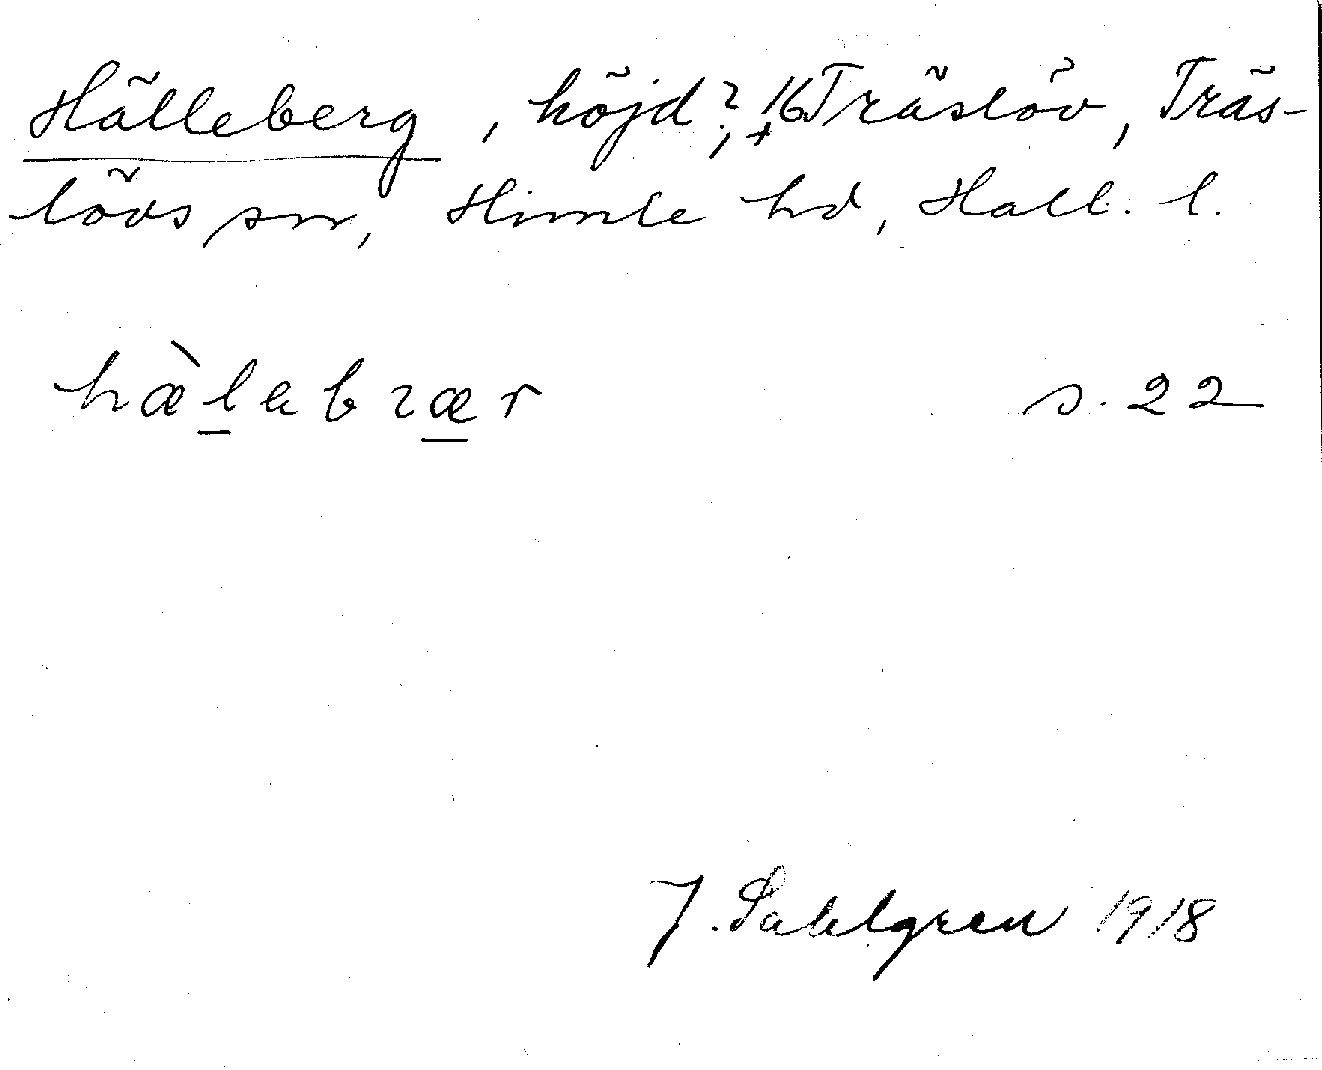 Hälleberg, höjd?, 16 Träslöv, Träs-
lövs sn, Himle hd, Hall. l.
hæ̀l̲ebræ̲r s. 22
J. Sahlgren 1918